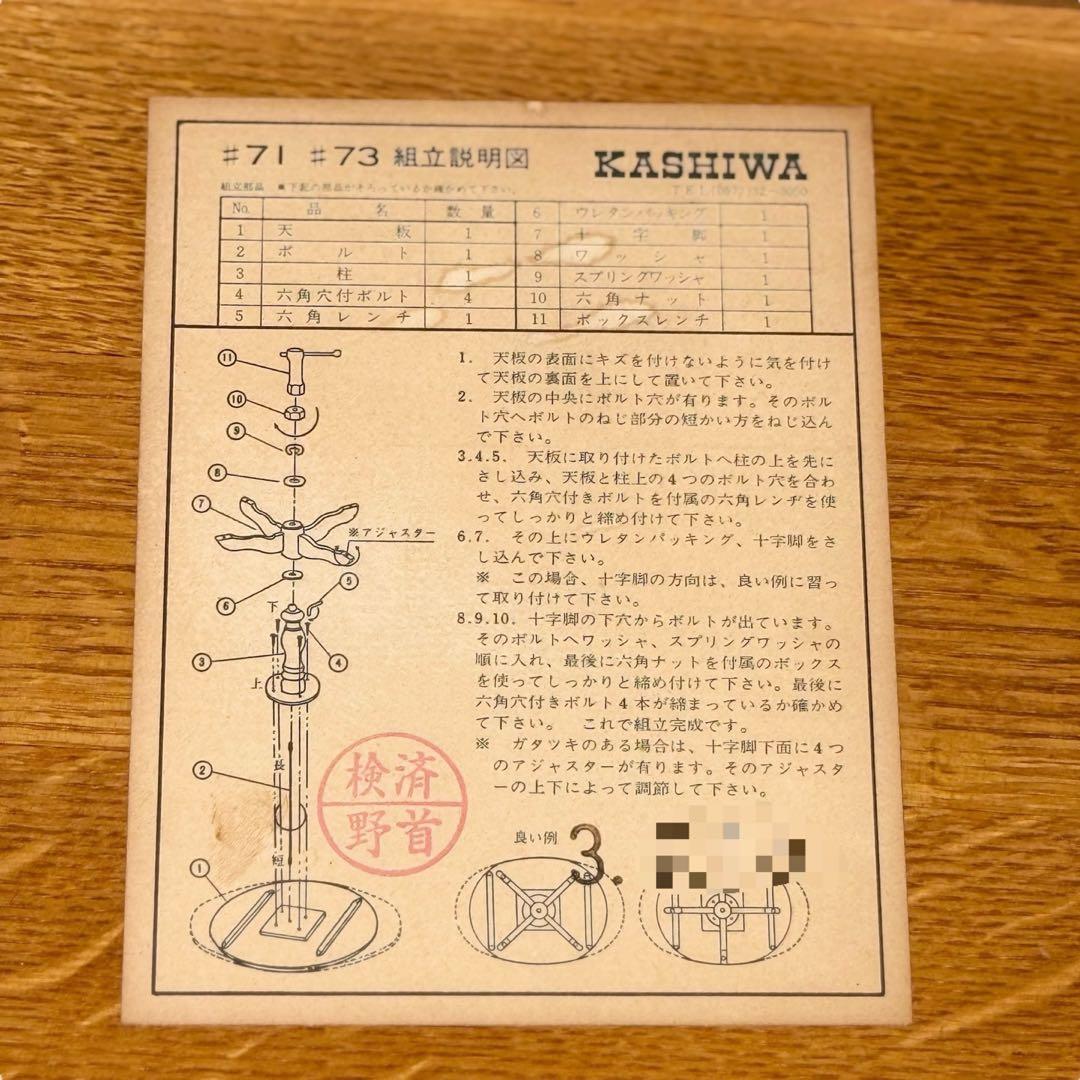 #71 #73 組立説明図 KASHIWA
組立部品 ■下記の部品がそろっているか確かめて下さい。
No. 品名 数量 6 ウレタンパッキング 1
1 天板 1 7 十字脚 1
2 ボルト 1 8 ワッシャ 1
3 柱 1 9 スプリングワッシャ 1
4 六角穴付ボルト 4 10 六角ナット 1
5 六角レンチ 1 11 ボックスレンチ 1
1. 天板の表面にキズを付けないように気を付け
て天板の裏面を上にして置いて下さい。
2. 天板の中央にボルト穴が有ります。そのボル
ト穴へボルトのねじ部分の短かい方をねじ込ん
で下さい。
3.4.5. 天板に取り付けたボルトへ柱の上を先に
さし込み、天板と柱上の4つのボルト穴を合わ
せ、六角穴付きボルトを付属の六角レンヂを使
ってしっかりと締め付けて下さい。
6.7. その上にウレタンパッキング、十字脚をさ
し込んで下さい。
※ この場合、十字脚の方向は、良い例に習っ
て取り付けて下さい。
8.9.10. 十字脚の下穴からボルトが出ています。
そのボルトへワッシャ、スプリングワッシャの
順に入れ、最後に六角ナットを付属のボックス
を使ってしっかりと締め付けて下さい。最後に
六角穴付きボルト4本が締まっているか確かめ
て下さい。 これで組立完成です。
※ ガタツキのある場合は、十字脚下面に4つ
のアジャスターが有ります。そのアジャスタ
ーの上下によって調節して下さい。
11
10
9
8
7
※アジャスター
6
5
下
3
4
上
長
2
短
1
検済
野首
良い例
3.